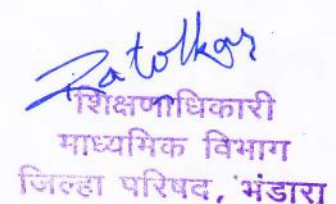 Patolkar
शिक्षणाधिकारी
माध्यमिक विभाग
जिल्हा परिषद, भंडारा